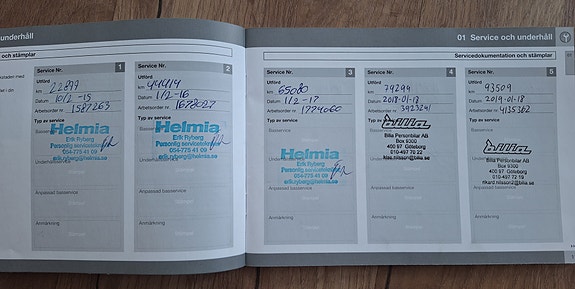 underhåll
01 Service och underhåll
och stämplar
Servicedokumentation och stämplar
Service Nr. 1
Utförd
km 22899
Datum 10/2 -15
Arbetsorder nr. 1587263
Typ av service
Helmia
Erik Ryberg
Personlig servicetekniker
054-775 41 09
erik.ryberg@helmia.se
Anpassad basservice
Anmärkning
Service Nr. 2
Utförd
km 44914
Datum 1/2 -16
Arbetsorder nr. 1678027
Typ av service
Helmia
Erik Ryberg
Personlig servicetekniker
054-775 41 09
erik.ryberg@helmia.se
Anpassad basservice
Anmärkning
Service Nr. 3
Utförd
km 65080
Datum 1/2 -17
Arbetsorder nr. 1774060
Typ av service
Basservice
Helmia
Erik Ryberg
Personlig servicetekniker
054-775 41 09
erik.ryberg@helmia.se
Anpassad basservice
Anmärkning
Service Nr. 4
Utförd
km 79299
Datum 2018-01-18
Arbetsorder nr. 3923241
Typ av service
bilia
Bilia Personbilar AB
Box 9300
400 97 Göteborg
010-497
Anpassad basservice
Anmärkning
Service Nr. 5
Utförd
km 93509
Datum 2019-01-18
Arbetsorder nr. 4135362
Typ av service
Basservice
bilia
Bilia Personbilar AB
Box 9300
400 97 Göteborg
010-497 72 19
Anpassad basservice
Anmärkning